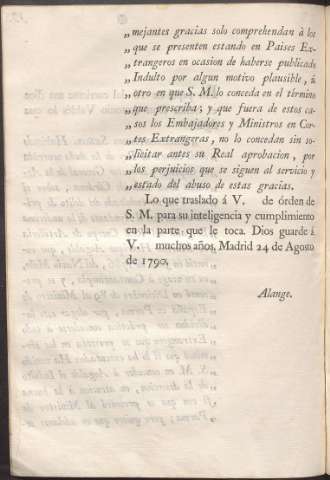 „mejantes gracias solo comprehendan á los
„que se presenten estando en Paises Ex-
„trangeros en ocasion de haberse publicado
„Indulto por algun motivo plausible, ú
„otro en que S. M. lo conceda en el término
„que prescriba; y que fuera de estos ca-
„sos los Embajadores y Ministros en Cor-
„tes Extrangeras, no lo concedan sin so-
„licitar antes su Real aprobacion, por
„los perjuicios que se siguen al servicio y
„estado del abuso de estas gracias.
Lo que traslado á V. de órden de
S. M. para su inteligencia y cumplimiento
en la parte que le toca. Dios guarde á
V. muchos años. Madrid 24 de Agosto
de 1790.
Alange.